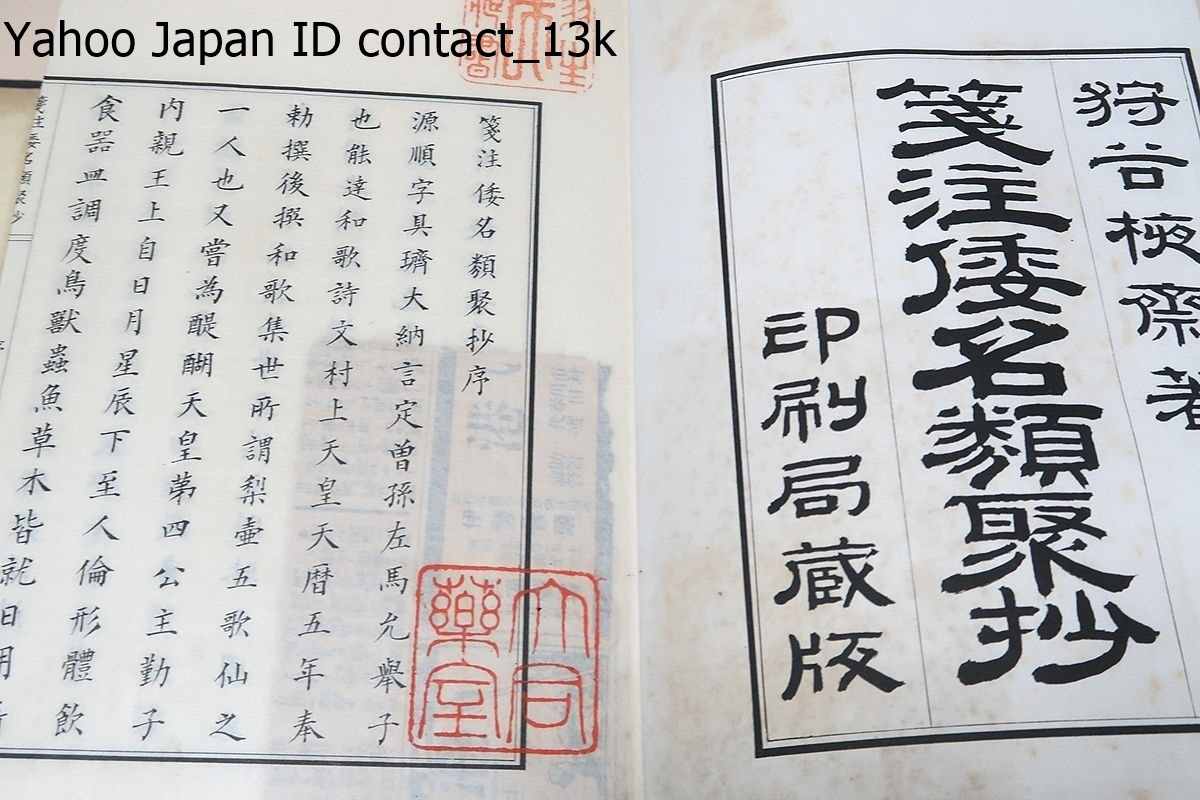 Yahoo Japan ID contact_13k
狩谷棭齋著
箋注倭名類聚抄
印刷局蔵版
箋注倭名類聚抄序
源順字具瓉大納言定曽孫左馬允舉子
也能達和歌詩文村上天皇天暦五年奉
勅撰後撰和歌集世所謂梨壷五歌仙之
一人也又嘗為醍醐天皇第四公主勤子
内親王上自日月星辰下至人倫形體飲
食器皿調度鳥獸蟲魚草木皆就日用
箋注倭名類聚抄